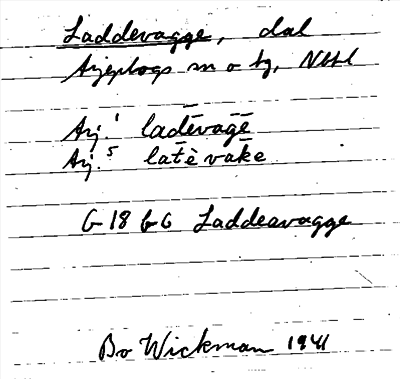 Laddevagge, dal
Arjeplogs sn o tg, Nbtl
Arj.¹ lad̄ēvaḡē
Arj.⁵ lat̄è vak̄e
G 18 b G Laddeavagge
Bo Wickman 1941